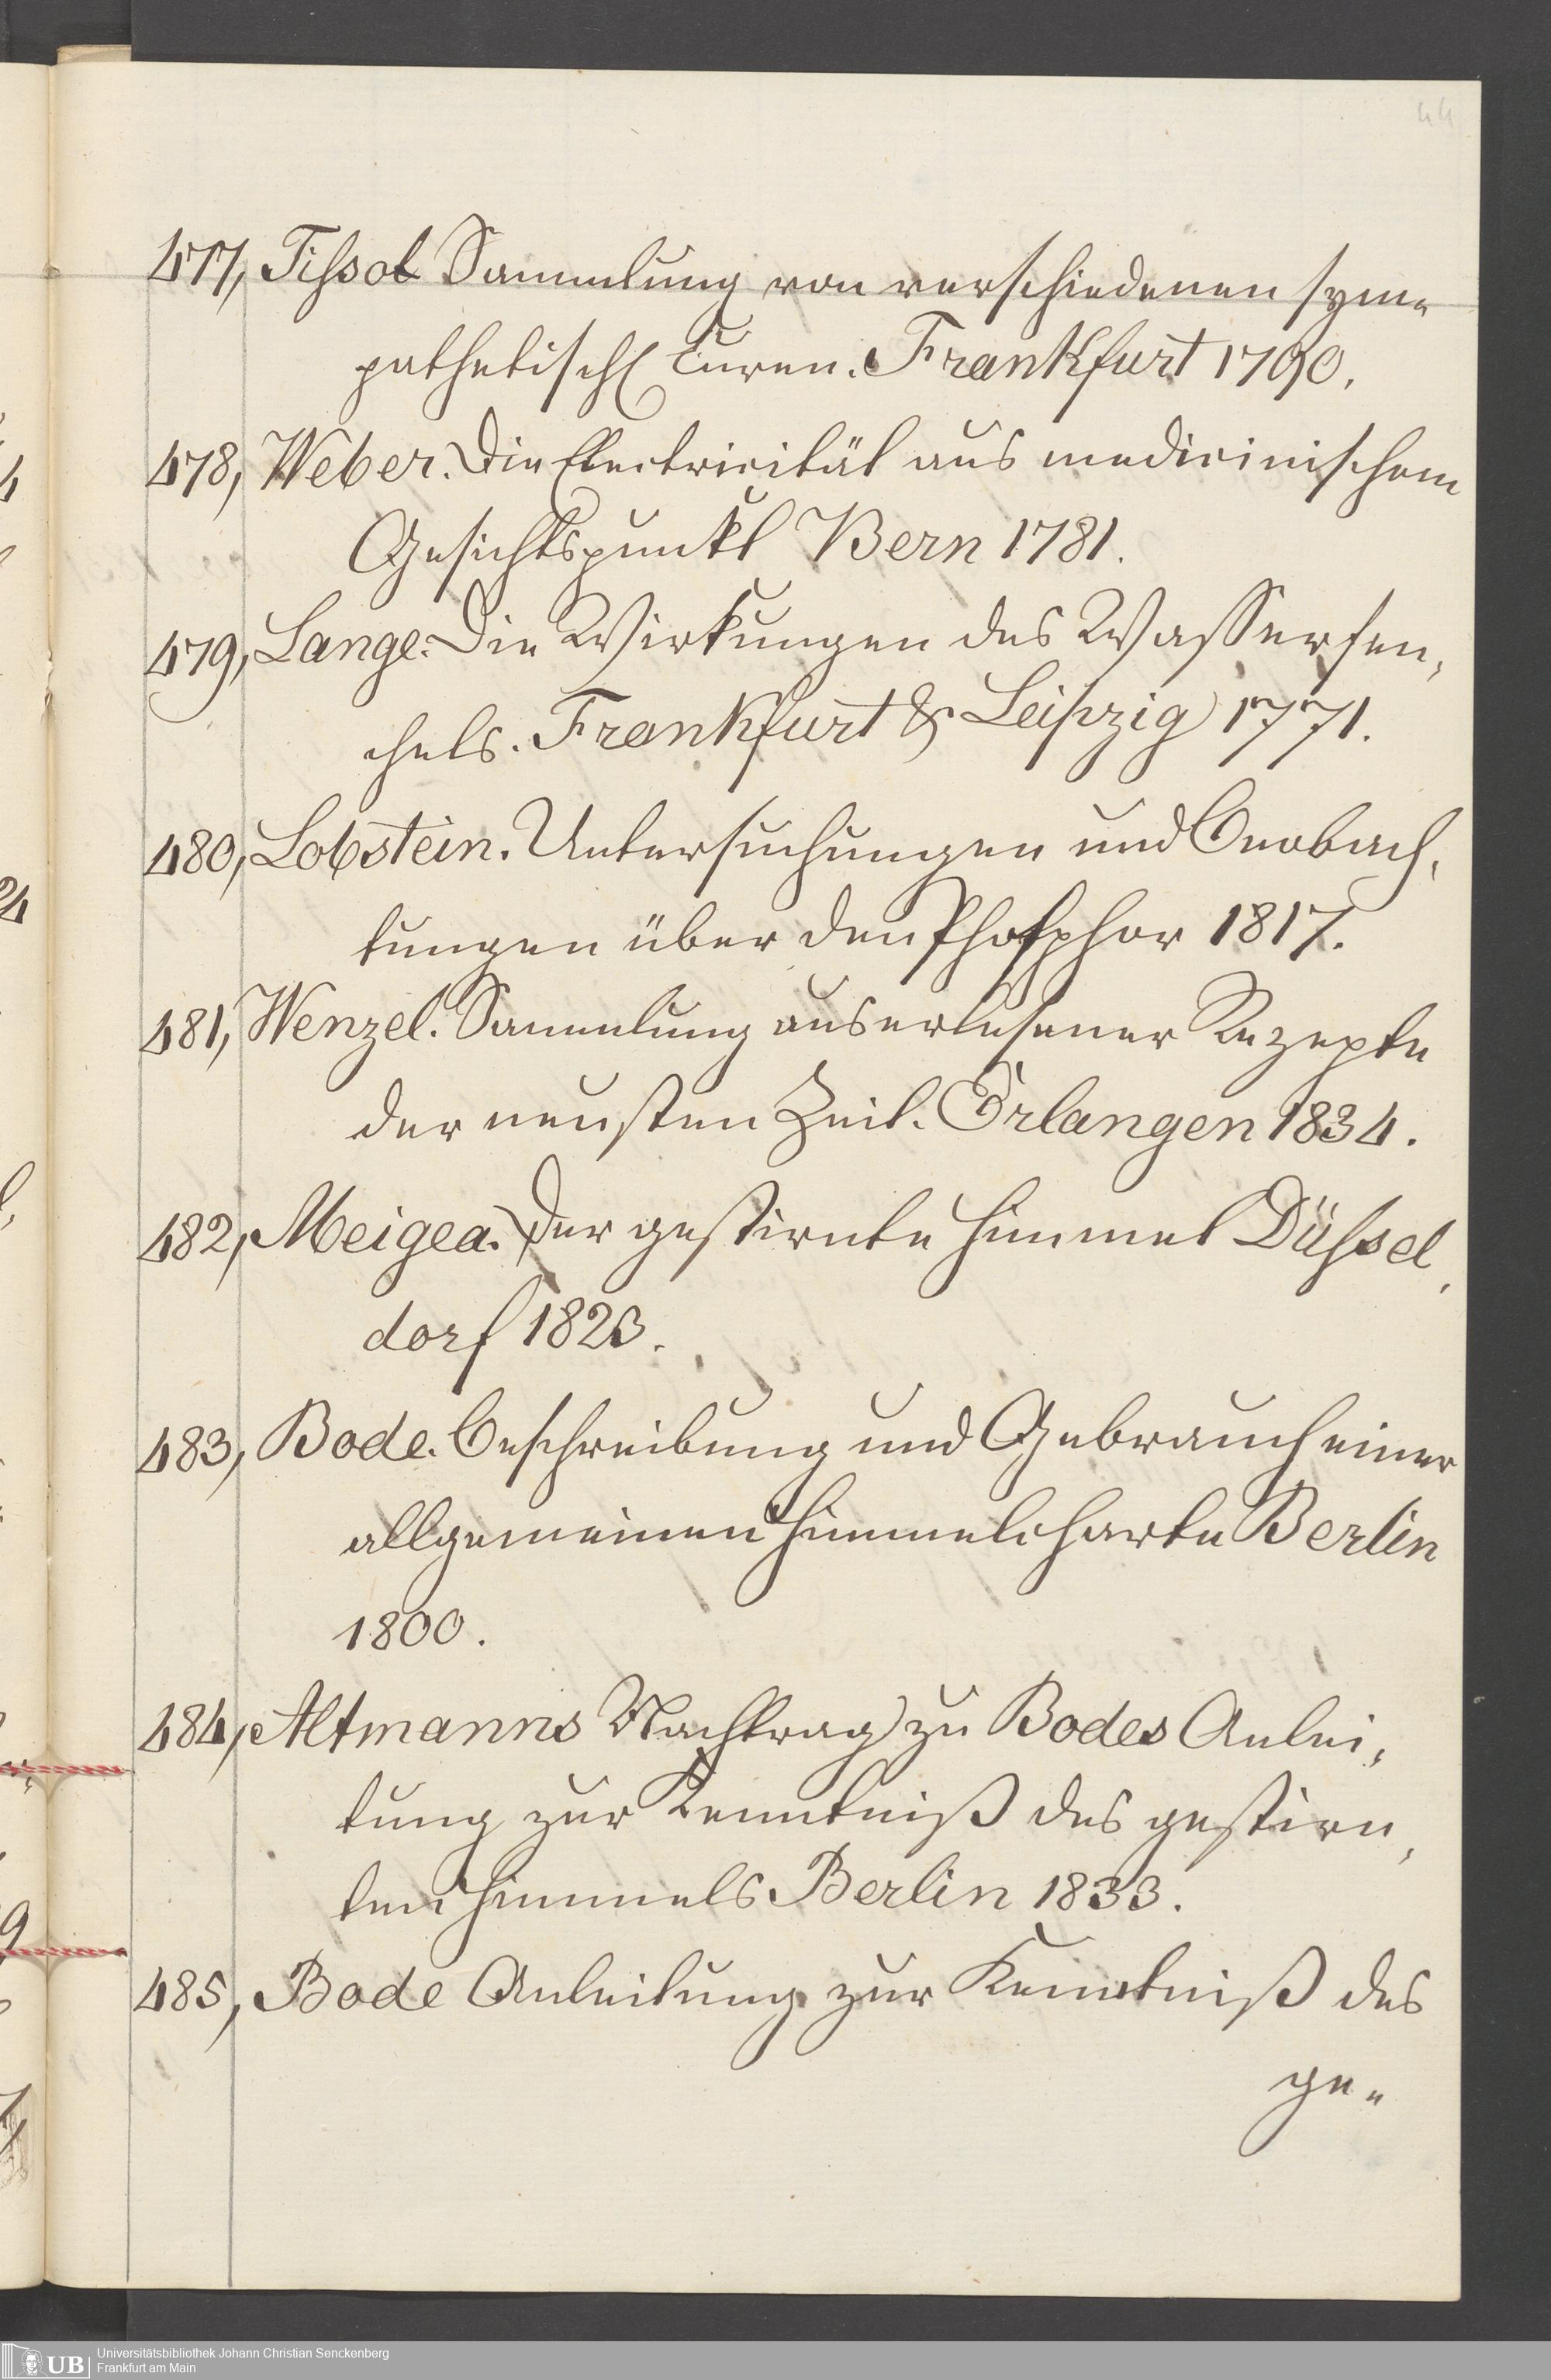 44
477, Tissot Sammlung von verschiedenen sym-
pathetisch Curen. Frankfurt 1790.
478, Weber. Die Electricität aus medicinischem
Gesichtspunkt Bern 1781.
479, Lange. Die Wirkungen des Wasserfen-
chels. Frankfurt & Leipzig 1771.
480, Lobstein. Untersuchungen und Beobach-
tungen über den Phosphor 1817.
481, Wenzel. Sammlung auserlesener Rezepte
der neusten Zeit. Erlangen 1834.
482, Meigea. Der gestirnte Himmel Düssel-
dorf 1823.
483, Bode. Beschreibung und Gebrauch einer
allgemeinen Himmelcharte Berlin
1800.
484, Altmanns Nachtrag zu Bodes Anlei-
tung zur Kenntniß des gestirn-
ten Himmels Berlin 1833.
485, Bode Anleitung zur Kenntniß des
ge-
UB
Universitätsbibliothek Johann Christian Senckenberg
Frankfurt am Main